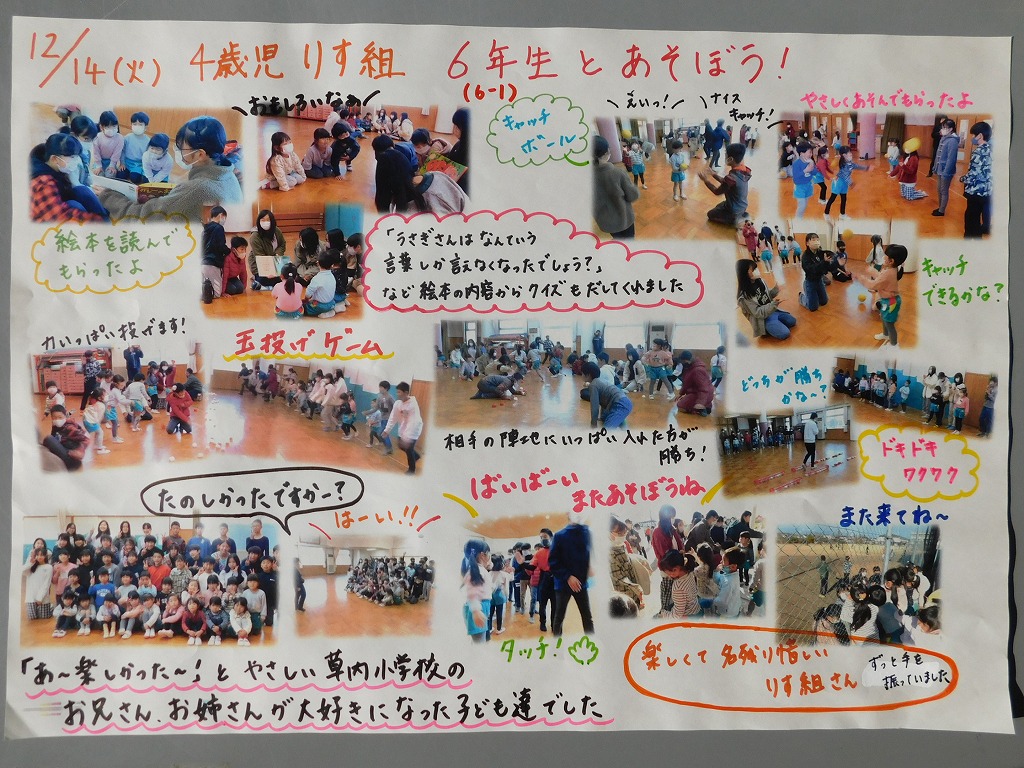 12/14(火) 4歳児 りす組 6年生とあそぼう!
(6-1)
おもしろいなぁ
キャッチ
ボール
えいっ!
ナイス
キャッチ!
やさしくあそんでもらったよ
絵本を読んで
もらったよ
「うさぎさんは なんていう
言葉しか言えなくなったでしょう?」
など 絵本の内容から クイズもだしてくれました
キャッチ
できるかな?
力いっぱい投げます!
玉投げゲーム
相手の陣地にいっぱい入れた方が
勝ち!
どっちが勝ち
かな~?
ドキドキ
ワクワク
たのしかったですかー?
はーい!!
ばいばーい
またあそぼうね
また来てね~
タッチ!
楽しくて 名残り惜しい
りす組さん
ずっと手を
振っていました
「あ~楽しかった~!」と やさしい草内小学校の
お兄さん、お姉さんが大好きになった子ども達でした